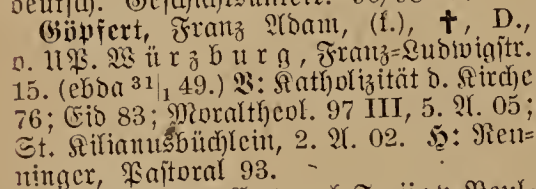 Göpfert, Franz Adam, (k.), ✝, D.,
o. UP. Würzburg, Franz=Ludwigstr.
15. (ebda ³¹|₁ 49.) V: Katholizität d. Kirche
76; Eid 83; Moraltheol. 97 III, 5. A. 05;
St. Kilianusbüchlein, 2. A. 02. H: Ren-
ninger, Pastoral 93.